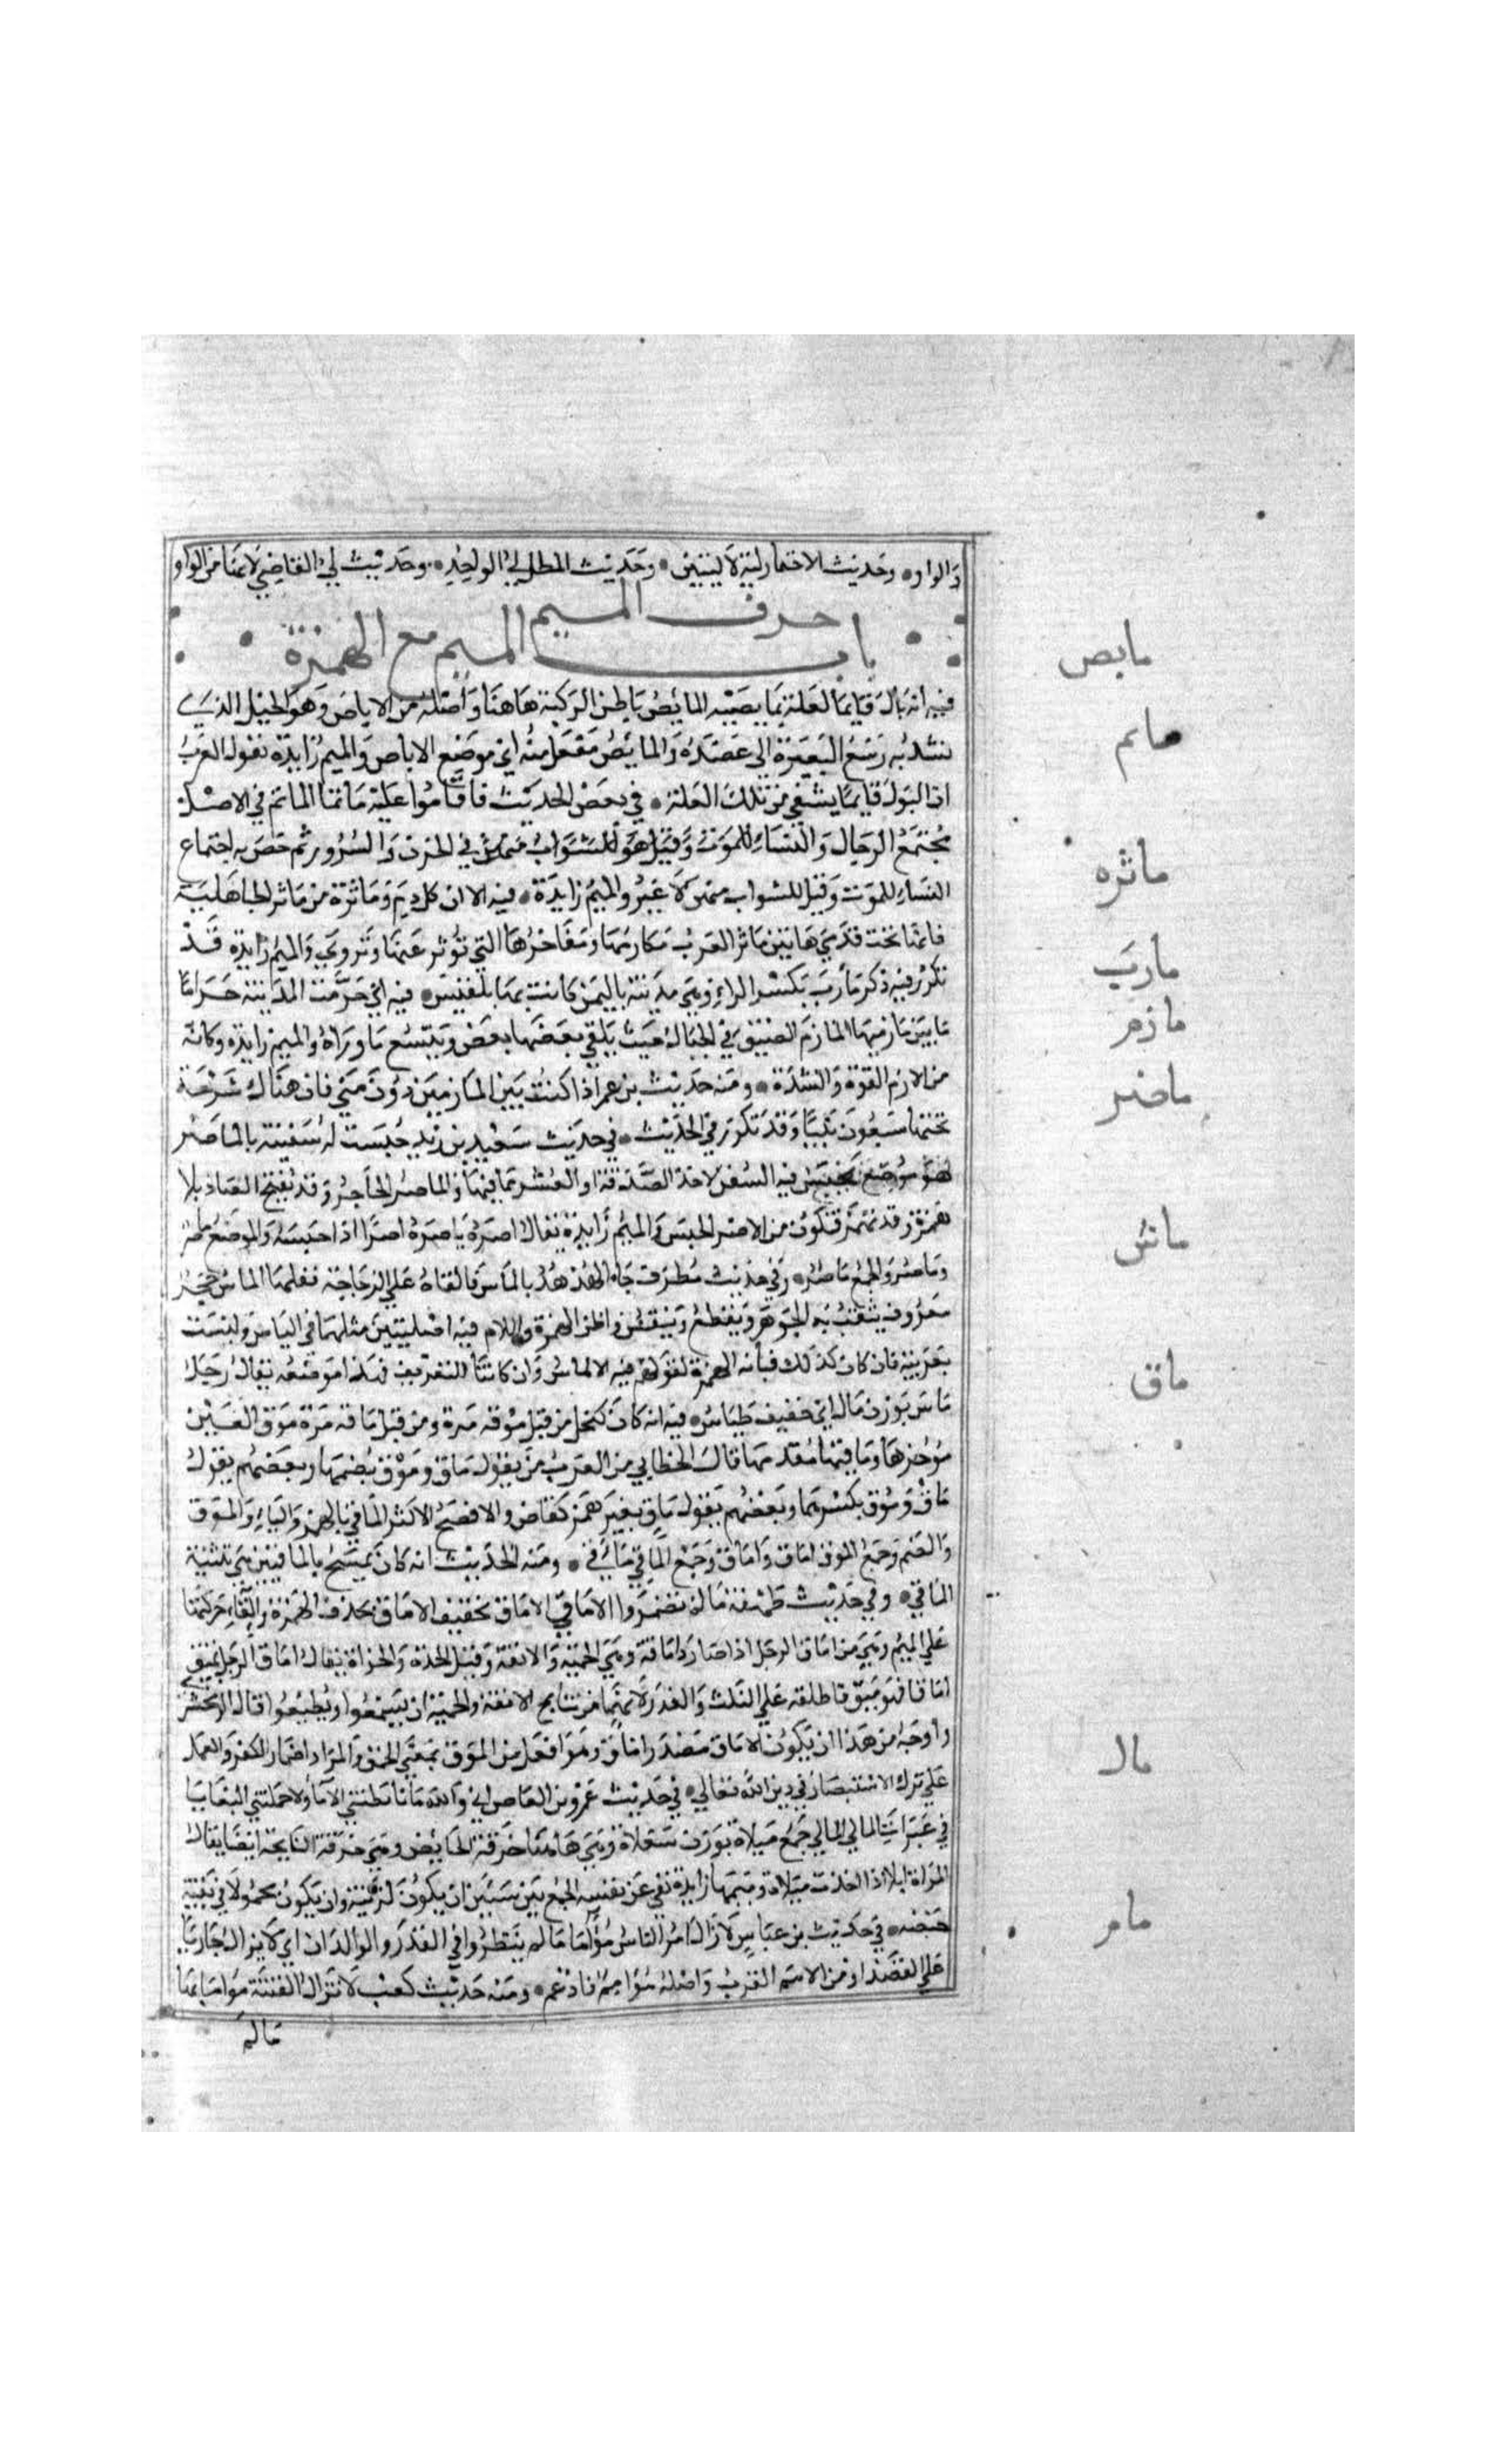 والواو وحديث الاختمار لية لا ليتين وحديث المطل لي الواجد وحديث لي القاضي لانها من الواو
حرف الميم
باب الميم مع الهمزة
مابض
فيه انه بال قايما لعلة بمابضيه المابض باطن الركبة هاهنا واصله من الاباض وهو الحبل الذي
ماتم
يشد به رسغ البعير الى عضده والمابض مفعل منه اي موضع الاباض والميم زايدة تقول العرب
ان البول قايما يشفي من تلك العلة في بعض الحديث فاقاموا عليه ماتما الماتم في الاصل
مجتمع الرجال والنساء للموت وقيل هو للشواب منهن في الحزن والسرور ثم خص به اجتماع
ماثره
النساء للموت وقيل للشواب منهن لا غير والميم زايدة فيه الا ان كل دم وماثرة من ماثر الجاهلية
فانها تحت قدمي هاتين ماثر العرب مكارمها ومفاخرها التي توثر عنها وتروي والميم زايدة قد
مارب
تكرر فيه ذكر مارب بكسر الراء وهي مدينة باليمن كانت بها بلقيس فيه اني حرمت المدينة حراما
مازم
ما بين مازميها المازم المضيق في الجبال حيث يلتقي بعضها بعض ويتسع ما وراه والميم زايدة وكانه
ماصر
من الازم القوة والشدة ومنه حديث بن عمر اذا كنت بين المازمين دون مني فان هناك شرحة
تحتها سبعون نبيا وقد تكرر في الحديث في حديث سعيد بن زيد حبست له سفينة بالماصر
هو موضع تحبس فيه السفن لاخذ الصدقة او العشر مما فيها والماصر الحاجز وقد تفتح الصاد بلا
همزة وقد تهمز فتكون من الاصر الحبس والميم زايدة يقال اصره ياصره اصرا اذا حبسه والموضع ماصر
ماس
وماصر والجمع ماصر وفي حديث مطرف جاء الهدهد بالماس فالقاه علي الزجاجة ففلقها الماس حجر
معروف يثقب به الجوهر ويقطع وينقش واظن الهمزة واللام فيه اصليتين مثلهما في الياس وليست
بعربية فان كان كذلك فبابه الهمزة لقولهم فيه الالماس وان كانتا للتعريف فهذا موضعه يقال رجل
ماق
ماس بوزن مال اي خفيف طياش فيه انه كان يكتحل من قبل موقه مرة ومن قبل ماقه مرة موق العين
موخرها وماقها مقدمها قال الخطابي من العرب من يقول ماق وموق بضمهما وبعضهم يقول
ماق وموق بكسرهما وبعضهم يقول ماق بغير همز كقاض والافصح الاكثر الماقي بالهمز والياء والموق
والضم وجمع الموق اماق واماق وجمع الماقي ماقي ومنه الحديث انه كان يمسح بالماقيين هي تثنية
الماقي وفي حديث طهفة ما لم تضمروا الاماق الاماق تخفيف الاماق بحذف الهمزة والقاء حركتها
علي الميم وهي من اماق الرجل اذا صار ذا ماقة وهي الحمية والانفة وقيل الحدة والجراة يقال اماق الرجل يميق
اماقا فهو مميق فاطلقه علي النكث والغدر لانهما من نتايج الانفة والحمية ان يسمعوا ويطيعوا قال الزمخشر
واوجه من هذا ان يكون الاماق مصدر اماق وهو افعل من الموق بمعني الحمق والمراد اضمار الكفر والعمل
مال
علي ترك الاستبصار في دين الله تعالي في حديث عمرو بن العاص اني والله ما تابطتني الاما ولا حملتني البغايا
في غبرات المالي المالي جمع ميلاة بوزن سعلاة وهي هاهنا خرقة الحايض وهي خرقة النايحة ايضا يقال
المراة ايلا اذا اتخذت ميلاة وميمها زايدة نفي عن نفسه الجمع بين سبتين ان يكون لزنية وان يكون محمولا في بقية
مام
حيضة في حديث بن عباس لا زال امر الناس مواما ما لم ينظروا في القدر والولدان اي لا يزال جاريا
علي القصد او من الامم القرب واصله موامم فادغم ومنه حديث كعب لا تزال الفتنة مواما بها
ما لم